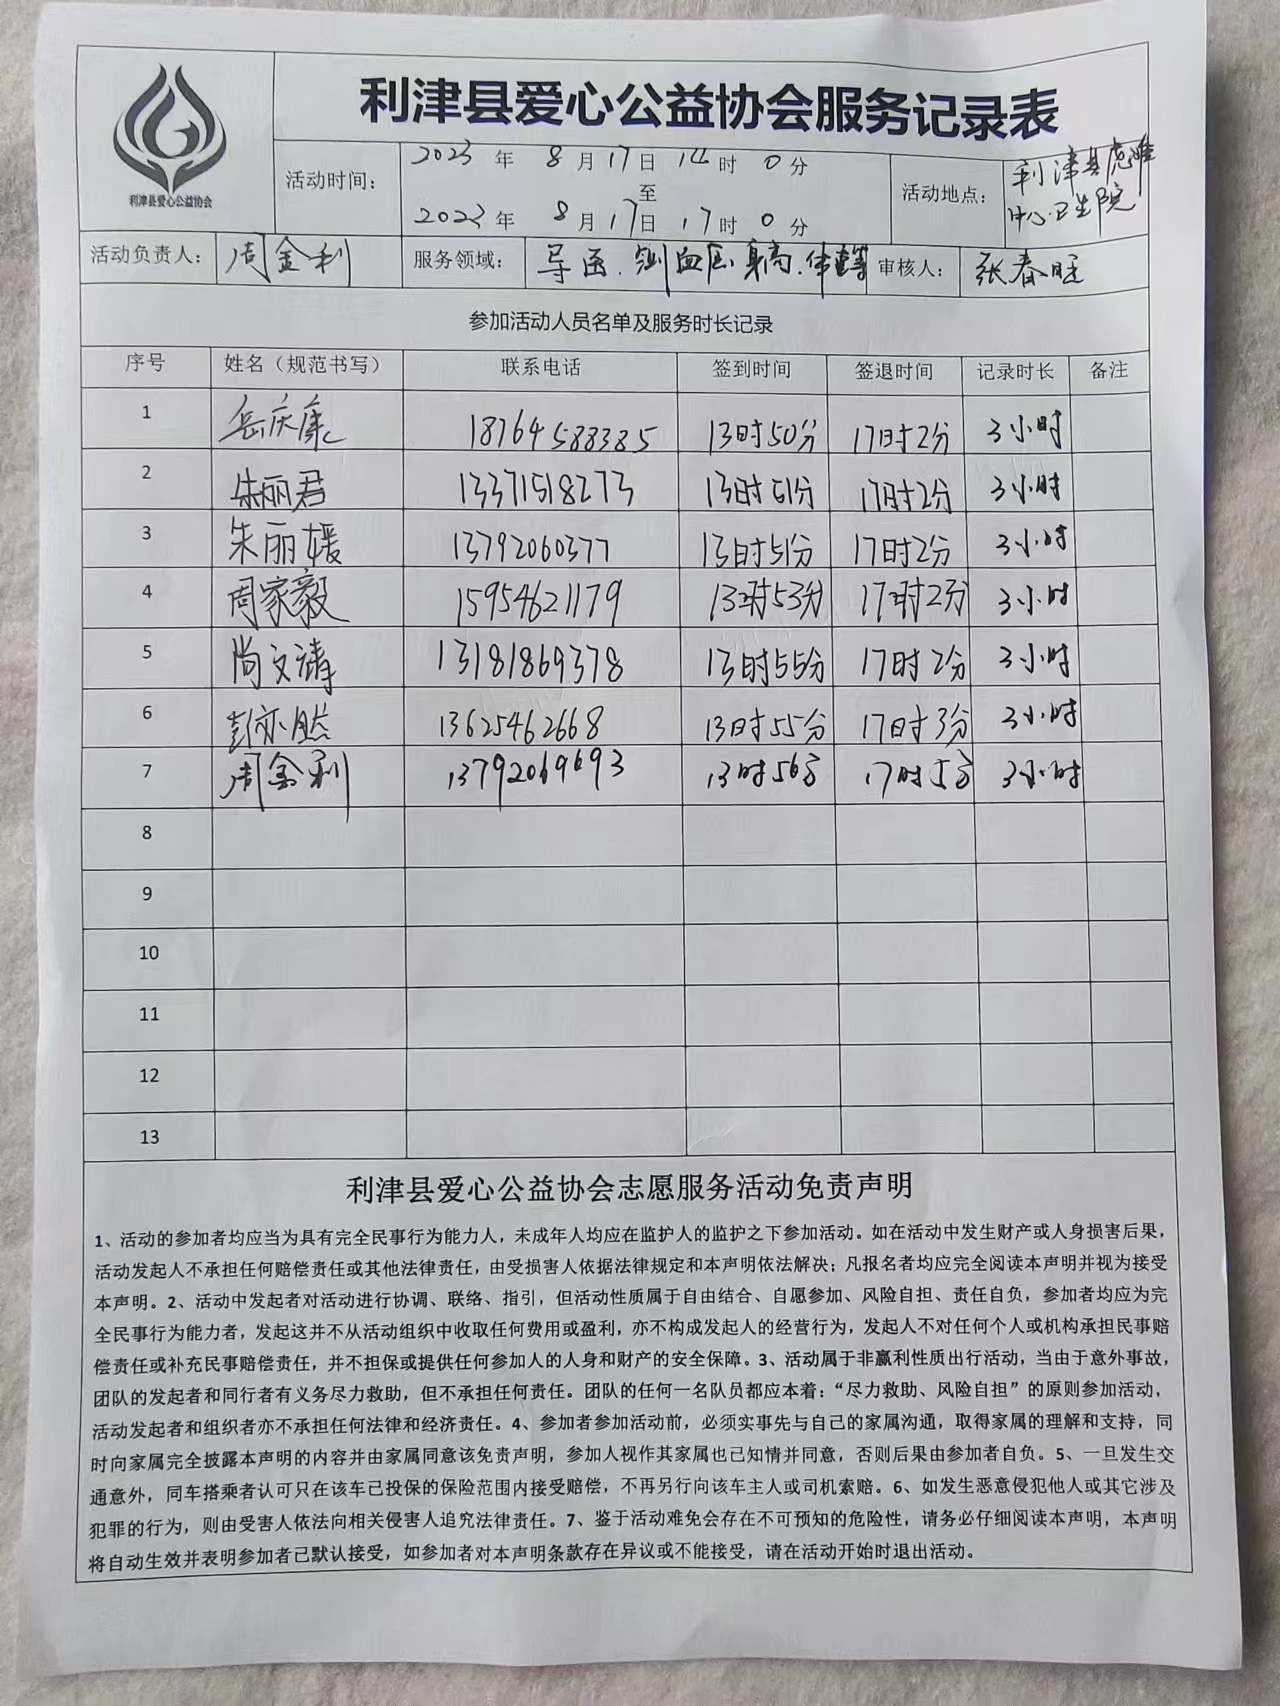 利津县爱心公益协会
利津县爱心公益协会服务记录表
活动时间：
2023 年 8 月 17 日 14 时 0 分
至
2023 年 8 月 17 日 17 时 0 分
活动地点：
利津县虎滩
中心卫生院
活动负责人：
周金利
服务领域：
导医、测血压、身高、体重等
审核人：
张春旺
参加活动人员名单及服务时长记录
序号 姓名（规范书写） 联系电话 签到时间 签退时间 记录时长 备注
1 岳庆康 18764588385 13时50分 17时2分 3小时
2 朱丽君 13371518273 13时51分 17时2分 3小时
3 朱丽媛 13792060377 13时51分 17时2分 3小时
4 周家毅 15954621179 13时53分 17时2分 3小时
5 尚文涛 13181869378 13时55分 17时2分 3小时
6 彭亦然 13625462668 13时55分 17时3分 3小时
7 周金利 13792069693 13时56分 17时5分 3小时
8
9
10
11
12
13
利津县爱心公益协会志愿服务活动免责声明
1、活动的参加者均应当为具有完全民事行为能力人，未成年人均应在监护人的监护之下参加活动。如在活动中发生财产或人身损害后果，
活动发起人不承担任何赔偿责任或其他法律责任，由受损害人依据法律规定和本声明依法解决；凡报名者均应完全阅读本声明并视为接受
本声明。2、活动中发起者对活动进行协调、联络、指引，但活动性质属于自由结合、自愿参加、风险自担、责任自负，参加者均应为完
全民事行为能力者，发起这并不从活动组织中收取任何费用或盈利，亦不构成发起人的经营行为，发起人不对任何个人或机构承担民事赔
偿责任或补充民事赔偿责任，并不担保或提供任何参加人的人身和财产的安全保障。3、活动属于非赢利性质出行活动，当由于意外事故，
团队的发起者和同行者有义务尽力救助，但不承担任何责任。团队的任何一名队员都应本着：“尽力救助、风险自担”的原则参加活动，
活动发起者和组织者亦不承担任何法律和经济责任。4、参加者参加活动前，必须实事先与自己的家属沟通，取得家属的理解和支持，同
时向家属完全披露本声明的内容并由家属同意该免责声明，参加人视作其家属也已知情并同意，否则后果由参加者自负。5、一旦发生交
通意外，同车搭乘者认可只在该车已投保的保险范围内接受赔偿，不再另行向该车主人或司机索赔。6、如发生恶意侵犯他人或其它涉及
犯罪的行为，则由受害人依法向相关侵害人追究法律责任。7、鉴于活动难免会存在不可预知的危险性，请务必仔细阅读本声明，本声明
将自动生效并表明参加者已默认接受，如参加者对本声明条款存在异议或不能接受，请在活动开始时退出活动。